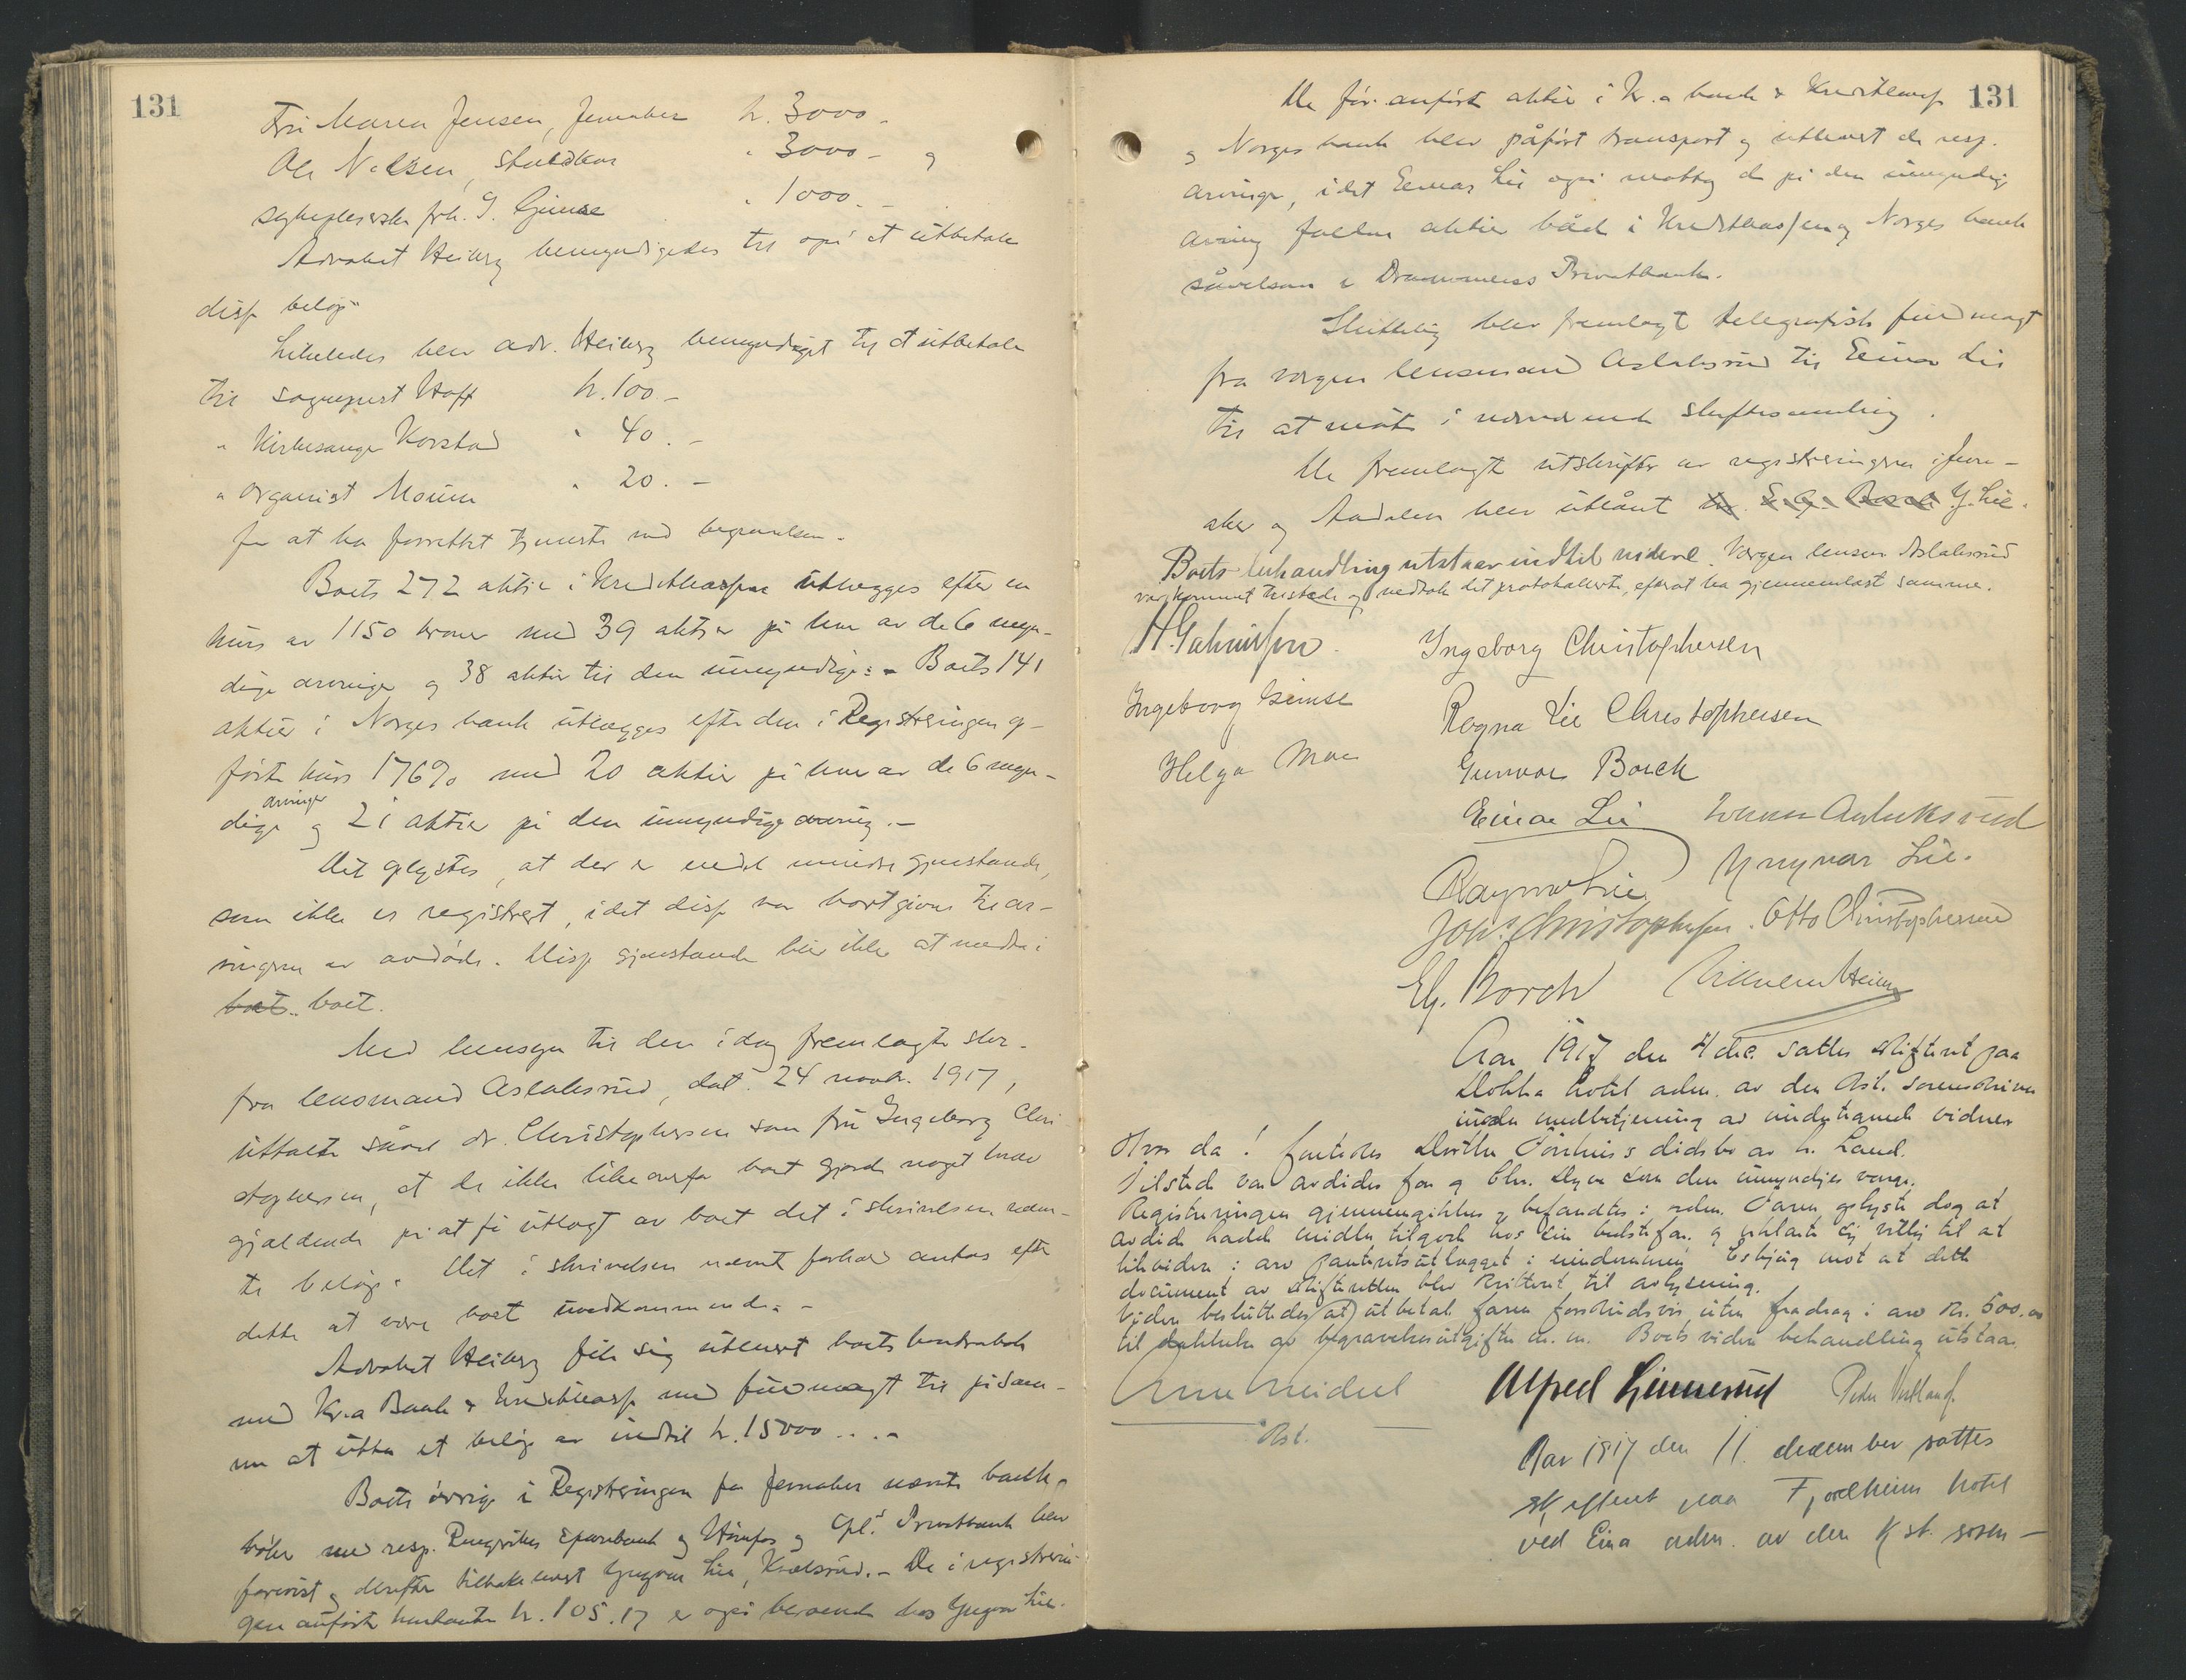 131
Fru Maren Jensen, Jevnaker kr. 3000 -
Ole Nilsen, " 3000 - og
sykepleierske frk. I. Gjense " 1000. -
Advokat Heiberg bemyndigedes til også at utbetale
disse beløp.
Likeledes blev adv. Heiberg bemyndiget til at utbetale
til sogneprest Hoff kr. 100 -
" Kirkesanger Korstad " 40. -
" organist Moum " 20. -
for at ha forrettet tjeneste ved begravelsen. -
Boets 272 aktier i Kreditkassen utlægges efter en
kurs av 1150 kroner med 39 aktier på hver av de 6 myn-
dige arvinger og 38 aktier til den umyndige. - Boets 141
aktier i Norges bank utlægges efter den i Registreringen op-
førte kurs 176% med 20 aktier på hver av de 6 myn-
arvinger
dige og 21 aktier på den umyndige arving. -
Det oplystes, at der er endel mindre gjenstande,
som ikke er registrert, idet disse var bortgivne til ar-
vingerne av avdøde. Disse gjenstande blir ikke at medta i
boet. boet.
Med hensyn til den idag fremlagte skr.
fra lensmand Aslaksrud, dat. 24 novbr. 1917,
uttalte såvel dr. Christophersen som fru Ingeborg Chri-
stophersen, at de ikke likeoverfor boet gjorde noget krav
gjældende på at få utlagt av boet det i skrivelsen nævn-
te beløp. Det i skrivelsen nævnte forhold antas efter
dette at være boet uvedkommende. -
Advokat Heiberg fik sig utlevert boets kontrabok
med Kr.a Bank & Kreditkasse med fuldmagt til på sam-
me at utta et beløp av indtil kr. 15000. . . -
Boets øvrige i Registreringen for Jevnaker nævnte bank-
bøker med resp. Ringerikes Sparebank og Hønefos og Opl.s Privatbank blev
forevist og derefter tilbakelevert Yngvar Lie, Kvælsrud. - De i registrerin-
gen anførte kontanter kr. 105.17 er også beroende hos Yngvar Lie.
131
De før anførte aktier i Kr.a bank & Kreditkasse
og Norges bank blev påført transport og utlevert de resp.
arvinger, idet Einar Lie også mottog de på den umyndige
arving faldne aktier både i Kreditkassen og Norges bank
såvelsom i Drammens Privatbank.
Sluttelig blev fremlagt telegrafisk fuldmagt
fra vergen lensmand Aslaksrud til Einar Lie
til at møte i nærværende skiftesamling.
De fremlagte utskrifter av registreringerne i Jevn-
aker og Aadalen blev utlånt dr. E. G. Borch Y. Lie.
Boets behandling utstaar indtil videre. Vergen lensm. Aslaksrud
var kommet tilstede og vedtok det protokollerte, efterat ha gjennemlæst samme.
Ingeborg Christophersen
Ingeborg Gjense
Ragna Lie Christophersen
Helga Moe
Gunvor Borch
Einar Lie
Yngvar Lie.
Ragna Lie
Johs. Christophersen. Otto Christophersen
EG. Borch
Aar 1917 den 4 dec. sattes skifteret paa
Dokka hotel adm. av den kst. sorenskriver
under medbetjening av undertegnede vidner
Hvor da! foretokes Dorthe dødsbo av n. Land.
Tilstede var avdødes far og Chr. som den umyndiges verge.
Registreringen gjennemgikkes og befandtes i orden. Faren oplyste dog at
avdøde hadde midler tilgode hos sin bedstefar og erklærte sig villig til at
document av skifteretten blev kvittert til avlysning.
Videre besluttedes (at) utbetale faren forskudsvis uten fradrag i arv kr. 500.00
til dækkelse av begravelsesutgifter m. m. Boets videre behandling utstaar.
Kst.
Alfred Linnerud
Aar 1917 den 11. december sattes
skifteret paa Fjordheim hotel
ved Eina adm. av den kst. soren-